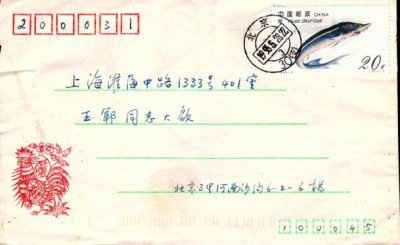 200031
中国邮政 CHINA
Huso dauricus
20分
北京
上海淮海中路1333号401室
王郸同志大啟
北京三里河南沙沟6-2-6楼
100045